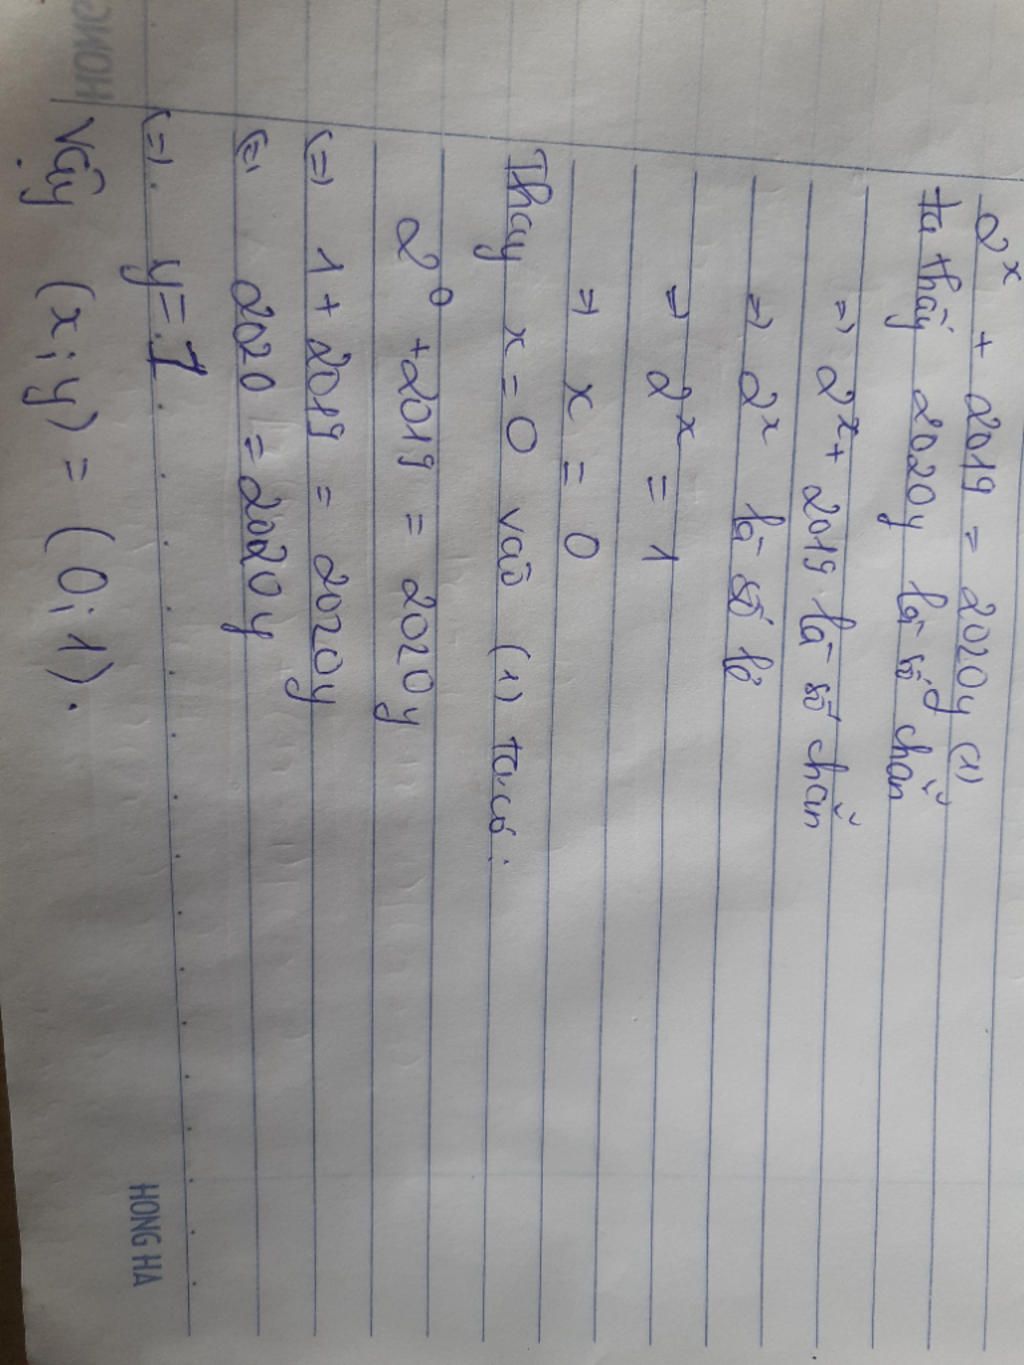 HONG
2^x + 2019 = 2020y (1)
ta thấy 2020y là số chẵn
=> 2^x + 2019 là số chẵn
=> 2^x là số lẻ
=> 2^x = 1
=> x = 0
Thay x = 0 vào (1) ta có:
2^0 + 2019 = 2020y
(=) 1 + 2019 = 2020y
(=) 2020 = 2020y
(=) y = 1
Vậy (x; y) = (0; 1).
HONG HA